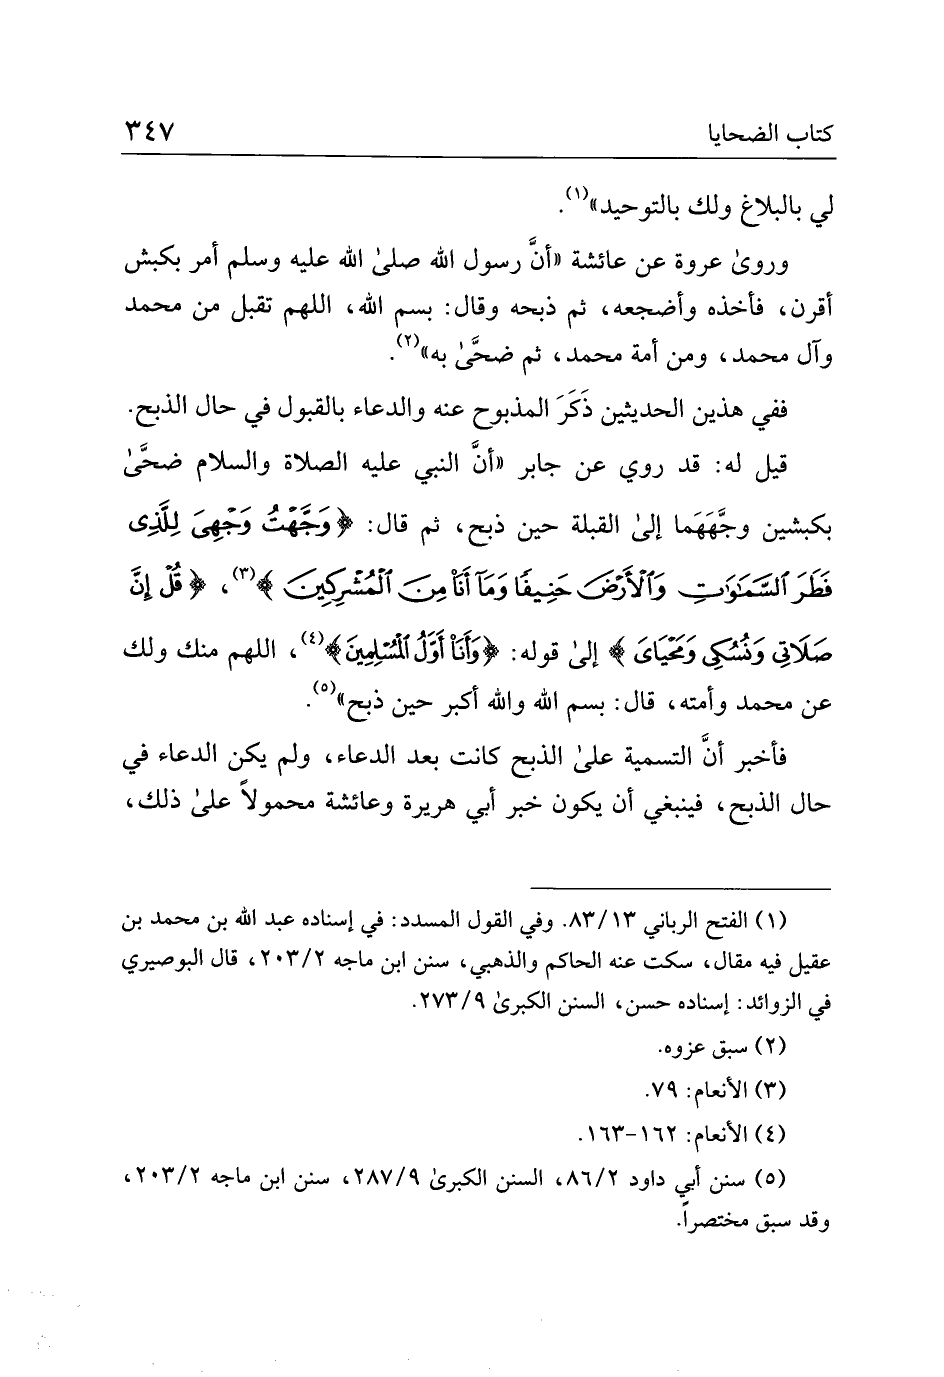 كتاب الضحايا ٣٤٧
لي بالبلاغ ولك بالتوحيد»(١).
وروىٰ عروة عن عائشة «أنَّ رسول الله صلىٰ الله عليه وسلم أمر بكبش
أقرن، فأخذه وأضجعه، ثم ذبحه وقال: بسم الله، اللهم تقبل من محمد
وآل محمد، ومن أمة محمد، ثم ضحَّىٰ به»(٢).
ففي هذين الحديثين ذَكَرَ المذبوح عنه والدعاء بالقبول في حال الذبح.
قيل له: قد روي عن جابر «أنَّ النبي عليه الصلاة والسلام ضحَّىٰ
بكبشين وجَّهَهَما إلىٰ القبلة حين ذبح، ثم قال: ﴿وَجَّهْتُ وَجْهِيَ لِلَّذِى
فَطَرَ ٱلسَّمَٰوَٰتِ وَٱلْأَرْضَ حَنِيفًا وَمَآ أَنَا۠ مِنَ ٱلْمُشْرِكِينَ﴾(٣)، ﴿قُلْ إِنَّ
صَلَاتِى وَنُسُكِى وَمَحْيَاىَ﴾ إلىٰ قوله: ﴿وَأَنَا۠ أَوَّلُ ٱلْمُسْلِمِينَ﴾(٤)، اللهم منك ولك
عن محمد وأمته، قال: بسم الله والله أكبر حين ذبح»(٥).
فأخبر أنَّ التسمية علىٰ الذبح كانت بعد الدعاء، ولم يكن الدعاء في
حال الذبح، فينبغي أن يكون خبر أبي هريرة وعائشة محمولاً علىٰ ذلك،
(١) الفتح الرباني ٨٣/١٣. وفي القول المسدد: في إسناده عبد الله بن محمد بن
عقيل فيه مقال، سكت عنه الحاكم والذهبي، سنن ابن ماجه ٢٠٣/٢، قال البوصيري
في الزوائد: إسناده حسن، السنن الكبرىٰ ٢٧٣/٩.
(٢) سبق عزوه.
(٣) الأنعام: ٧٩.
(٤) الأنعام: ١٦٢-١٦٣.
(٥) سنن أبي داود ٨٦/٢، السنن الكبرىٰ ٢٨٧/٩، سنن ابن ماجه ٢٠٣/٢،
وقد سبق مختصراً.